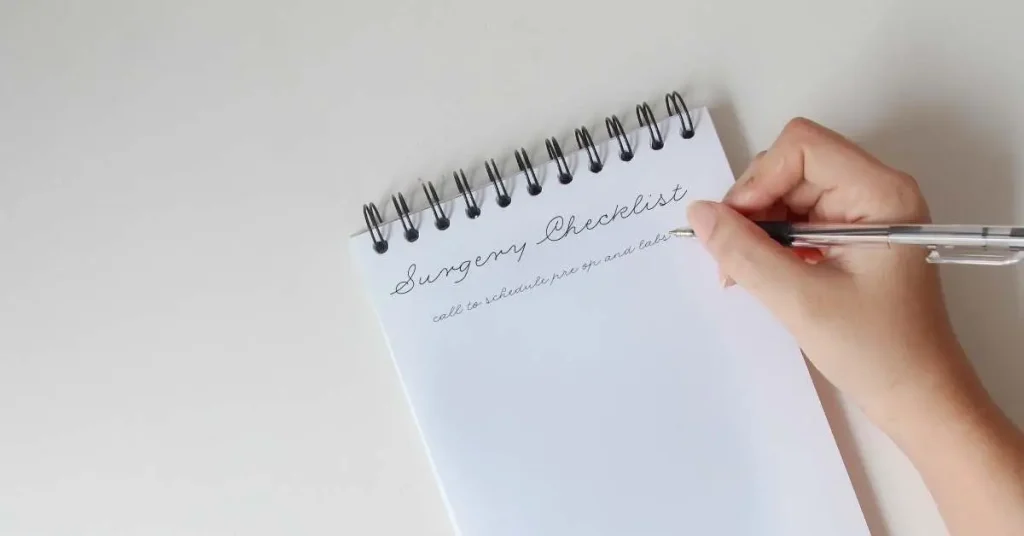 Surgery Checklist
call to schedule pre op and labs